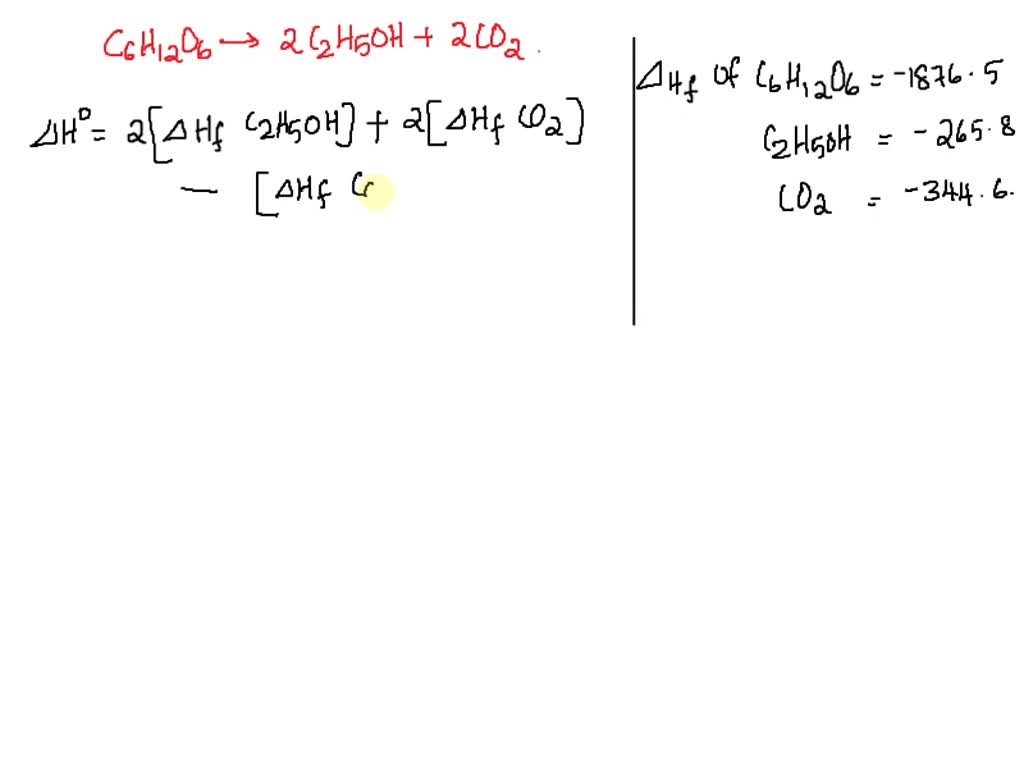 C6H12O6 → 2C2H5OH + 2CO2.
ΔH° = 2[ΔHf C2H5OH] + 2[ΔHf CO2]
— [ΔHf C
ΔHf of C6H12O6 = -1876.5
C2H5OH = -265.8
CO2 = -344.6.